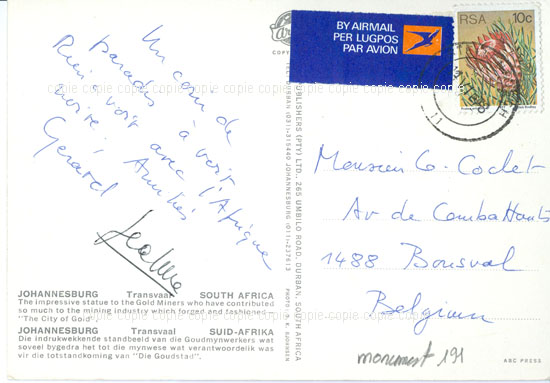 Un coin de
paradis à voir
Rien à voir avec l'Afrique
noire! Amitiés
Gérard
BY AIRMAIL
PER LUGPOS
PAR AVION
RSA 10c
copie copie copie copie copie copie copie copie copie copie copie copie
Monsieur G. Coclet
Av de Combattants
1488 Bousval
Belgium
JOHANNESBURG Transvaal SOUTH AFRICA
The impressive statue to the Gold Miners who have contributed
so much to the mining industry which forged and fashioned
"The City of Gold".
JOHANNESBURG Transvaal SUID-AFRIKA
Die indrukwekkende standbeeld van die Goudmynwerkers wat
soveel bygedra het tot die mynwese wat verantwoordelik was
vir die totstandkoming van "Die Goudstad".
PUBLISHERS (PTY) LTD., 265 UMBILO ROAD, DURBAN, SOUTH AFRICA
TEL: DURBAN (031)-315449 JOHANNESBURG (011)-237613
monument 191
ABC PRESS